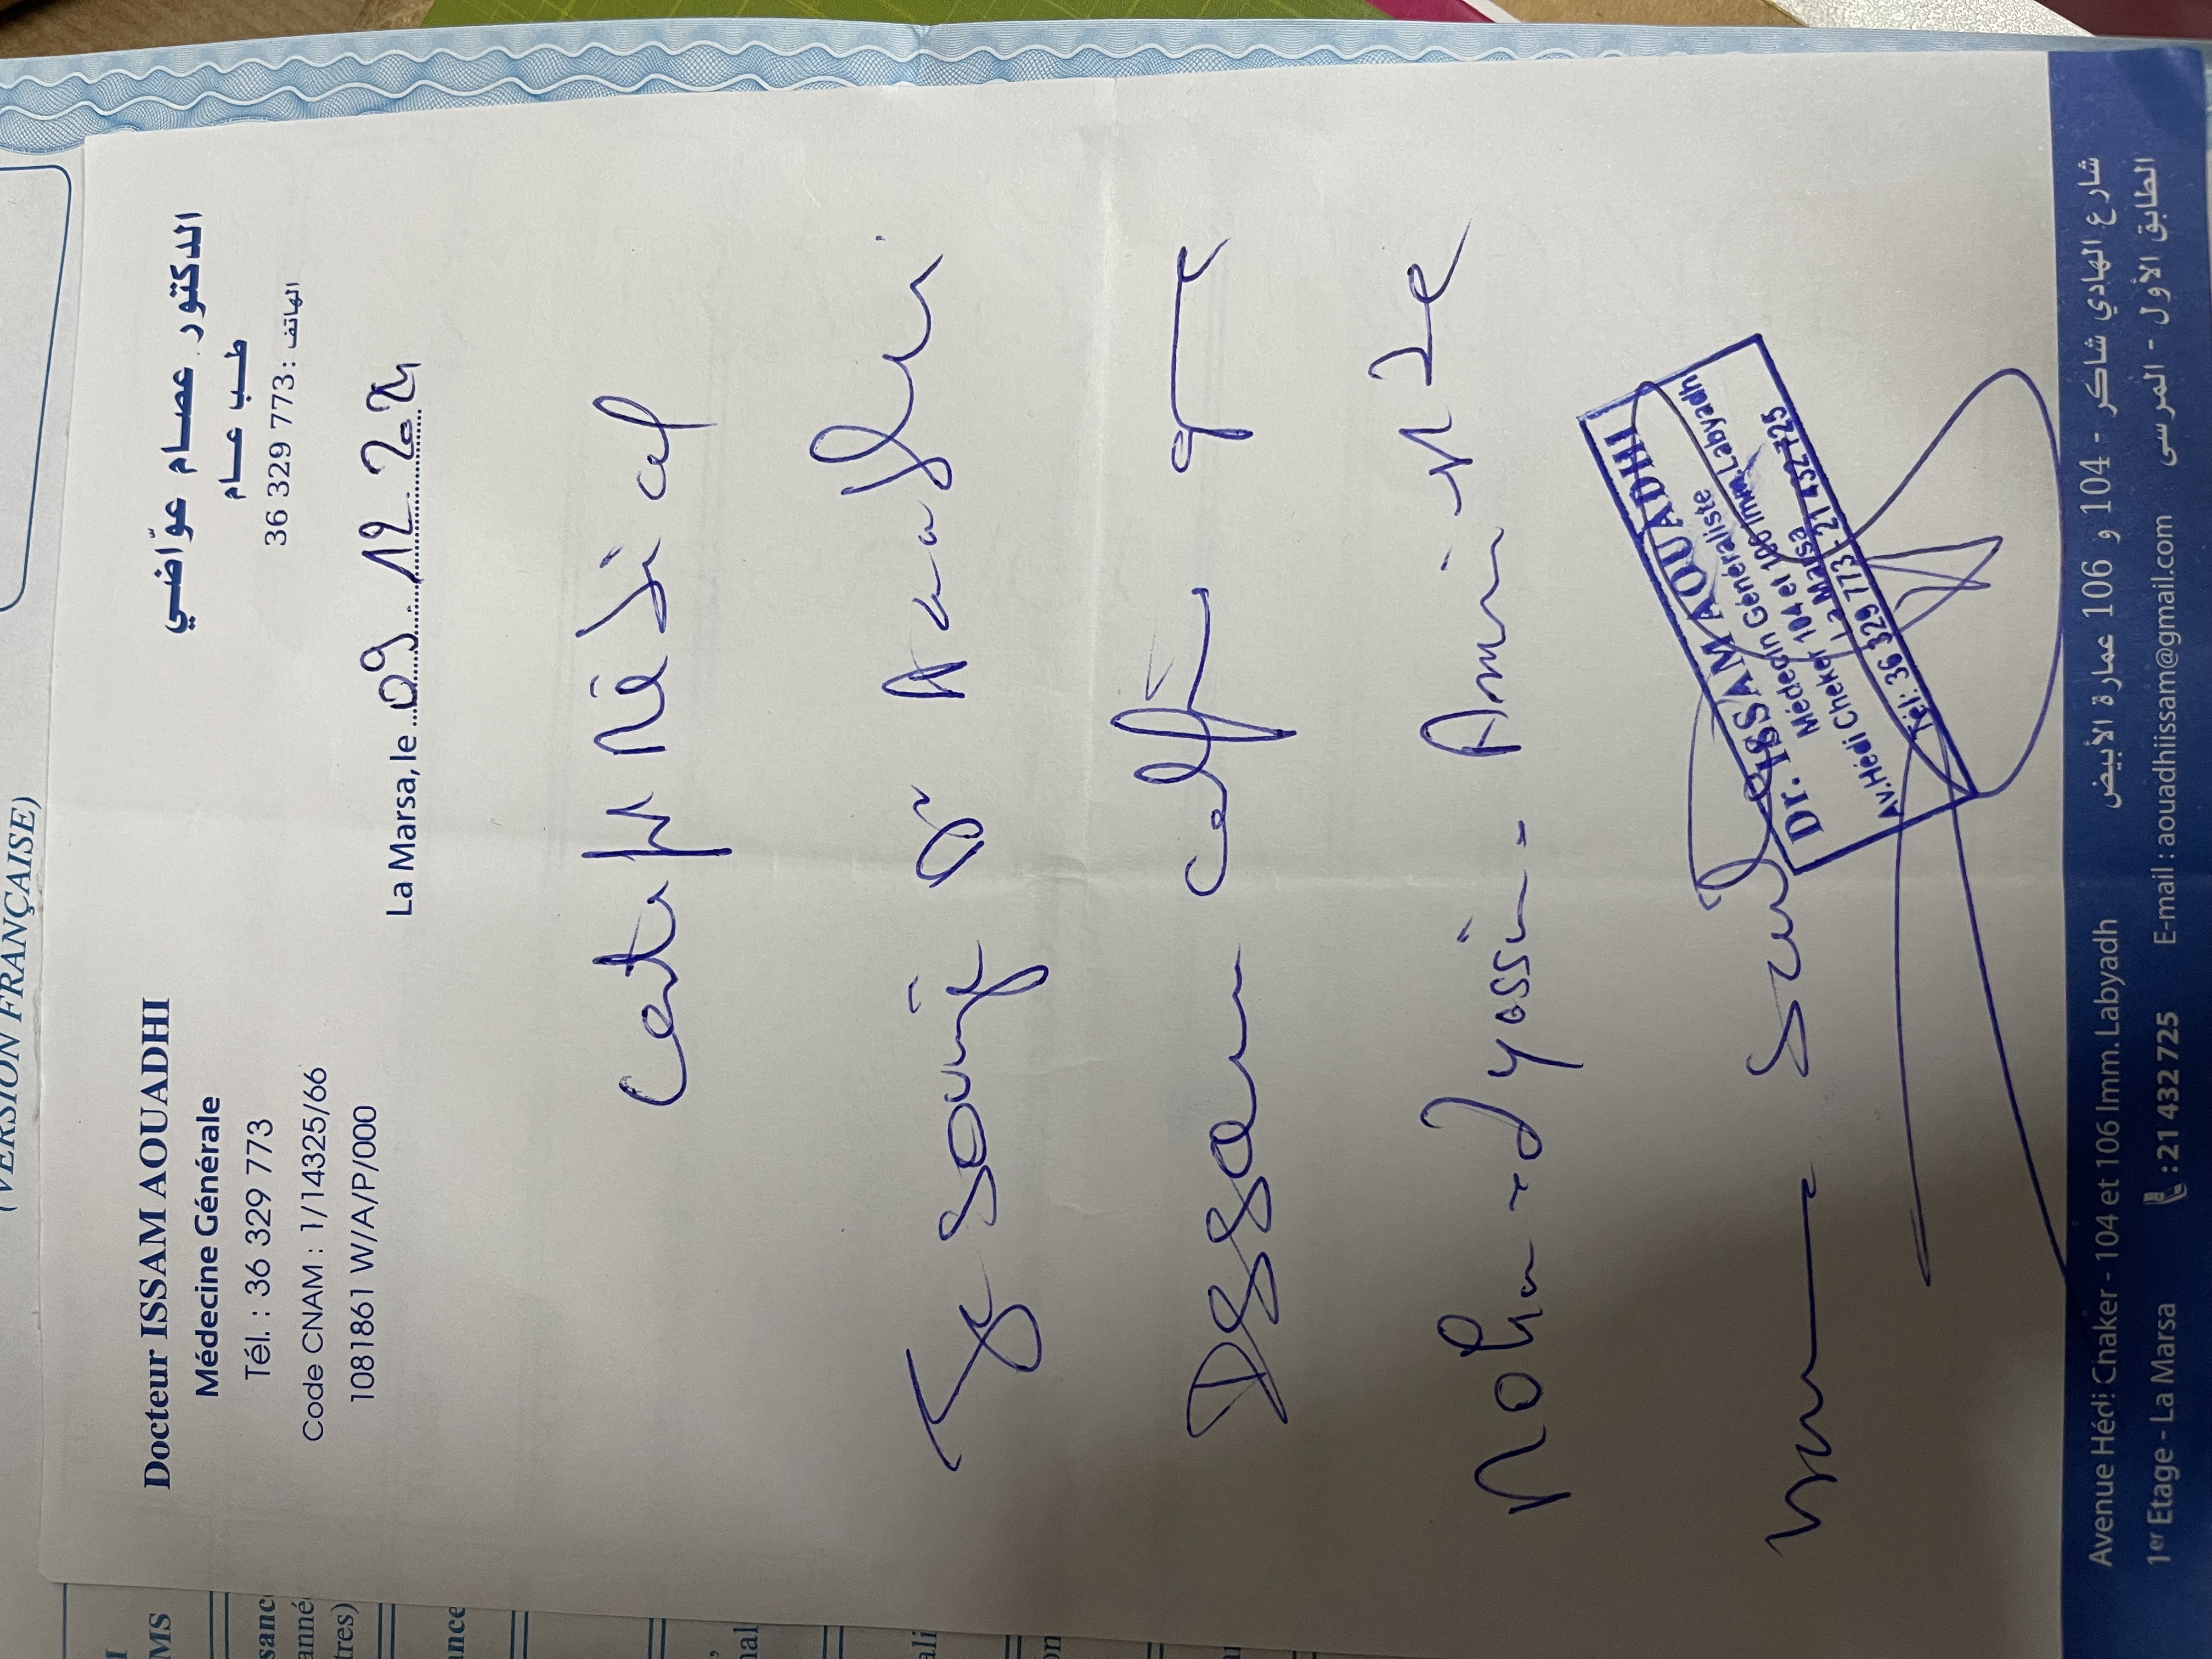 (VERSION FRANÇAISE)
Docteur ISSAM AOUADHI
Médecine Générale
Tél. : 36 329 773
Code CNAM : 1/14325/66
1081861 W/A/P/000
الدكتور عصام عوّاضي
طب عام
الهاتف : 36 329 773
La Marsa, le 09.12.2024
Certif Médical
Je soussigné Dr Aouadhi
Issam certifie que
Mohamed Yassine Amin
Dr. ISSAM AOUADHI
Médecin Généraliste
Av.Hédi Cheker 104 et 106 Imm.Labyadh
La Marsa
Tél: 36 329 773 - 21 432 725
Avenue Hédi Chaker - 104 et 106 Imm.Labyadh
شارع الهادي شاكر - 104 و 106 عمارة الأبيض
1er Etage - La Marsa
: 21 432 725
E-mail : aouadhiissam@gmail.com
الطابق الأول - المرسى